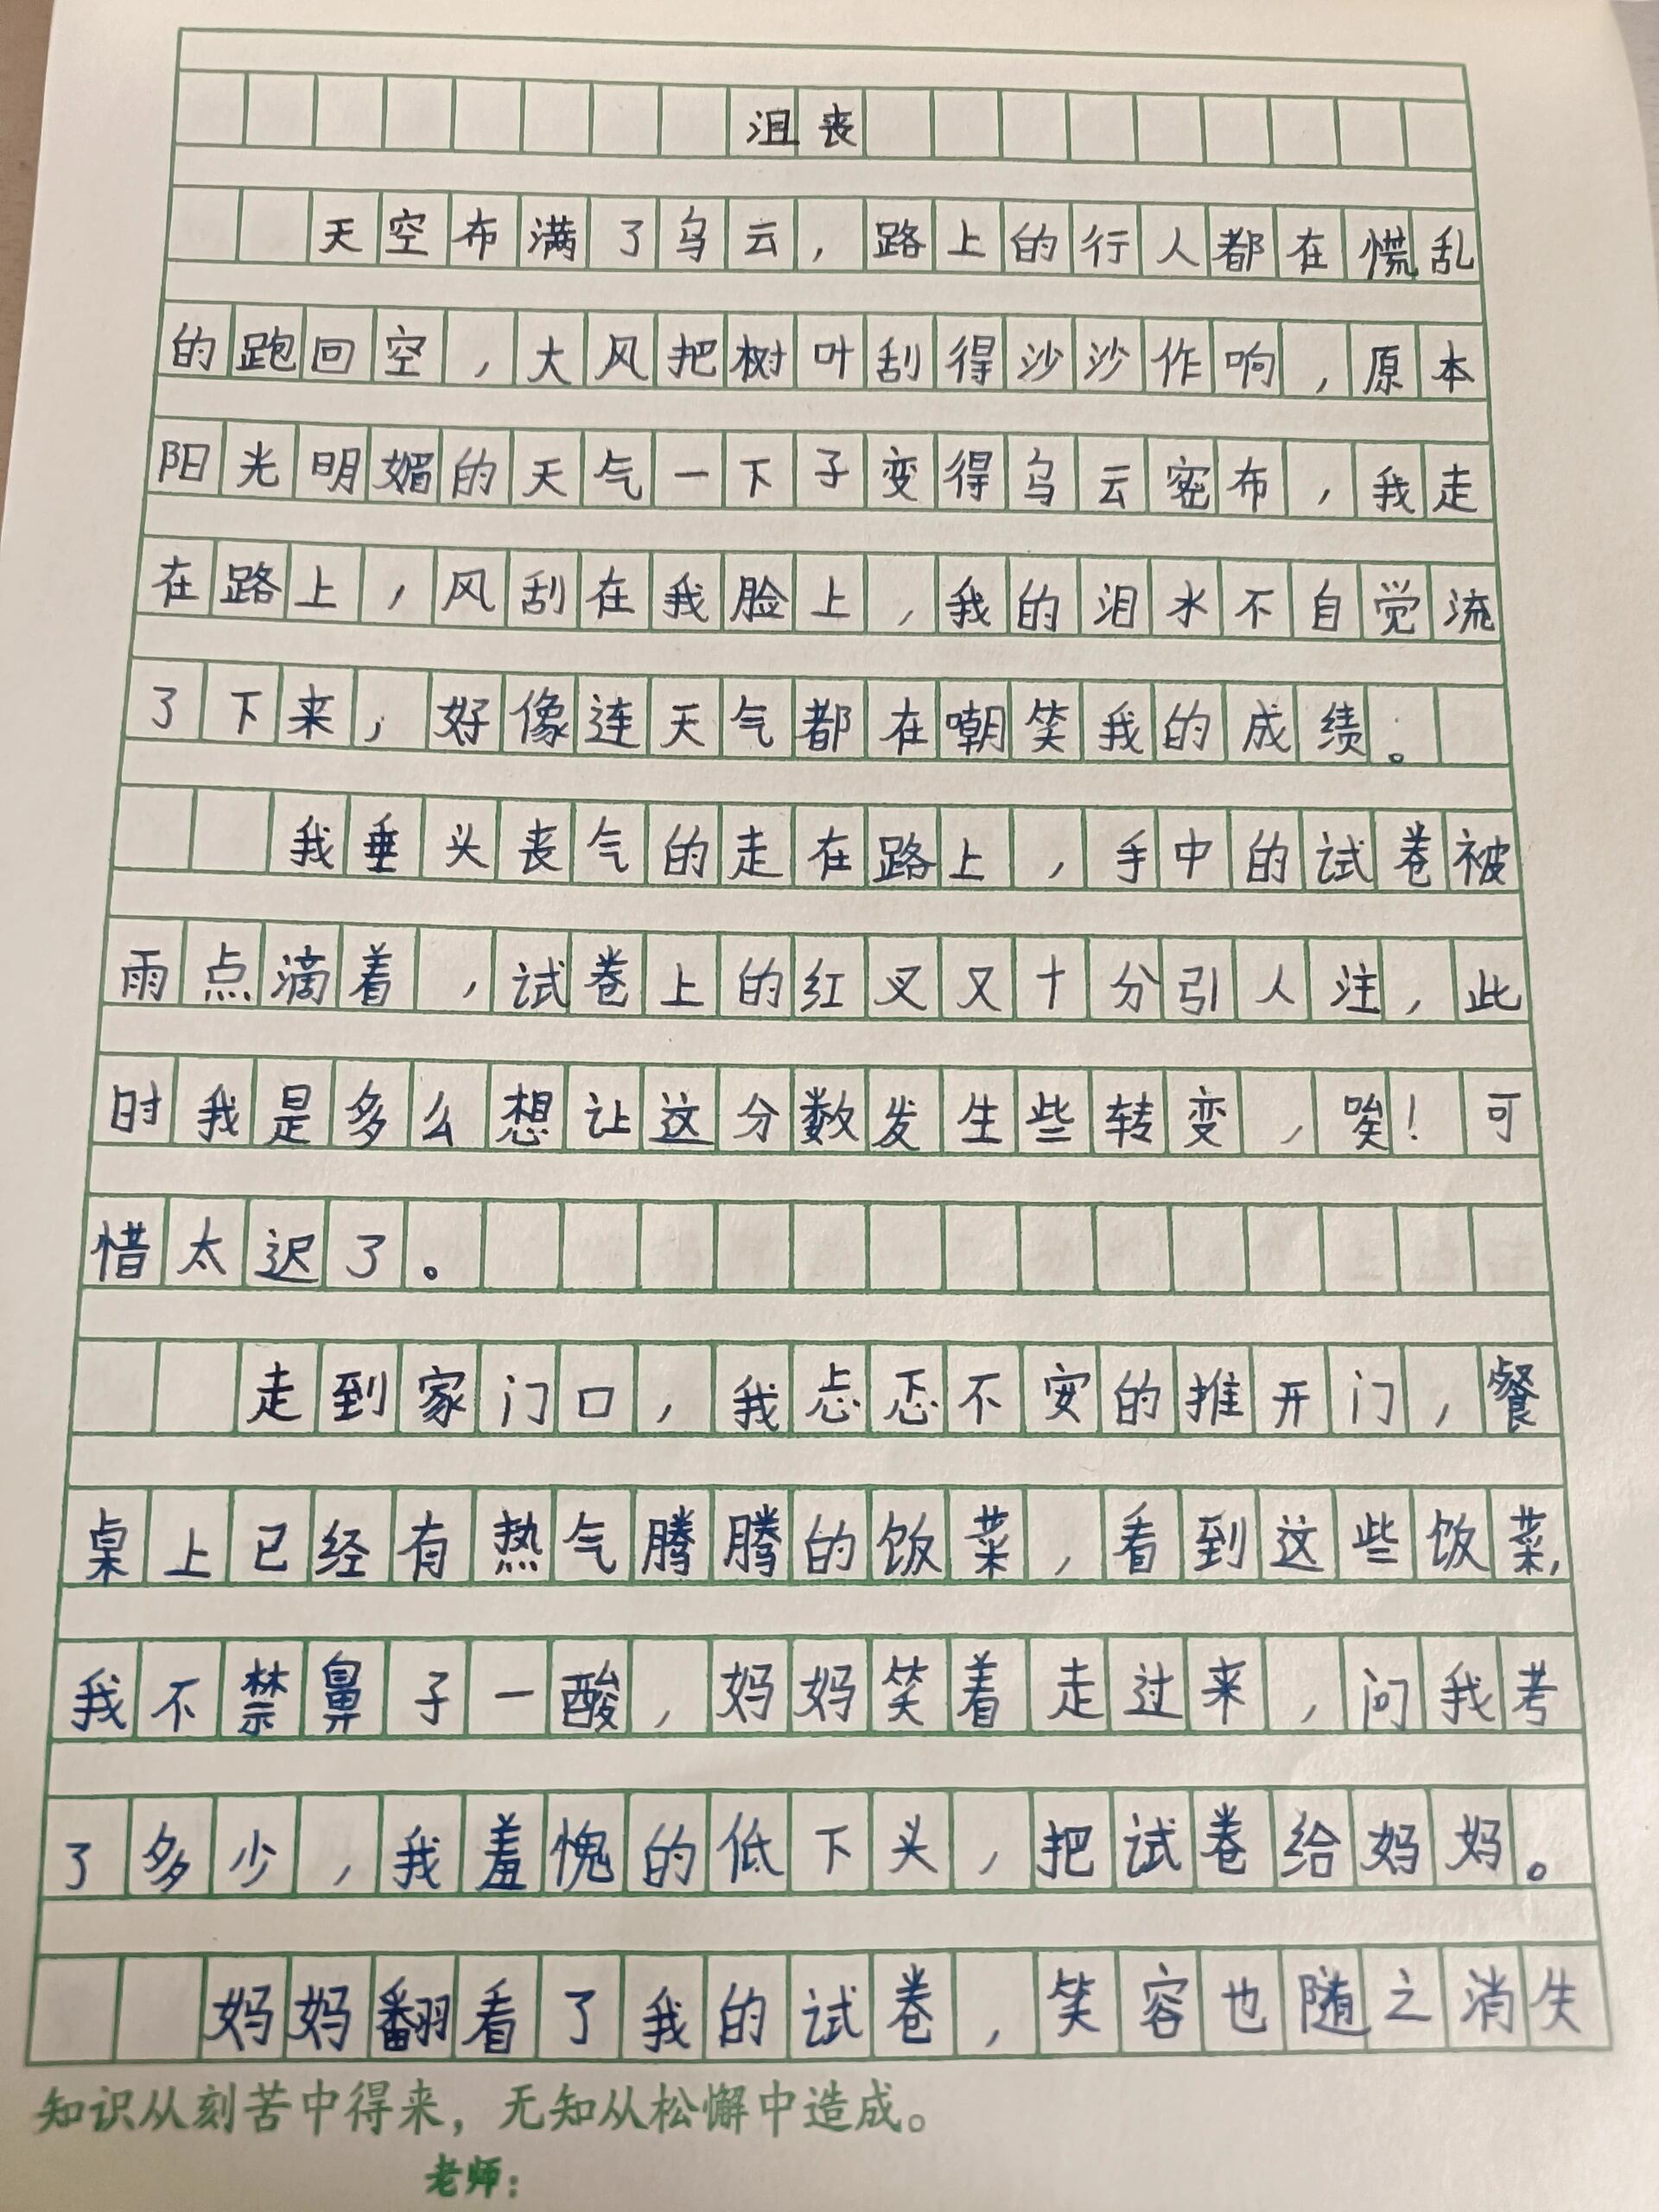 沮丧
天空布满了乌云，路上的行人都在慌乱
的跑回空，大风把树叶刮得沙沙作响，原本
阳光明媚的天气一下子变得乌云密布，我走
在路上，风刮在我脸上，我的泪水不自觉流
了下来，好像连天气都在嘲笑我的成绩。
我垂头丧气的走在路上，手中的试卷被
雨点滴着，试卷上的红叉又十分引人注，此
时我是多么想让这分数发生些转变，唉！可
惜太迟了。
走到家门口，我忐忑不安的推开门，餐
桌上已经有热气腾腾的饭菜，看到这些饭菜，
我不禁鼻子一酸，妈妈笑着走过来，问我考
了多少，我羞愧的低下头，把试卷给妈妈。
妈妈翻看了我的试卷，笑容也随之消失
知识从刻苦中得来，无知从松懈中造成。
老师：